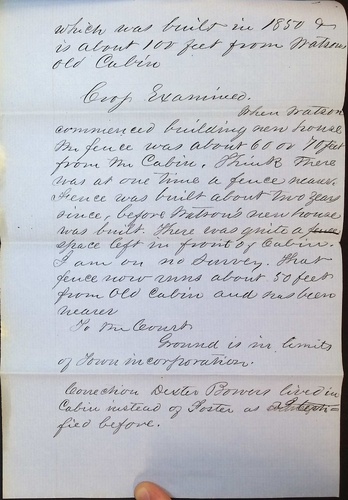 which was built in 1850 &
is about 100 feet from Watsons
old Cabin
Cross Examined.
When Watson
commenced building new house
the fence was about 60 or 70 feet
from the Cabin. Think there
was at one time a fence nearer.
Fence was built about two years
since, before Watson's new house
was built. There was quite a fence
space left in front of Cabin.
I am on no survey. That
fence now runs about 50 feet
from old Cabin and has been
nearer
To the Court
Ground is in limits
of Town incorporation.
Correction Dexter Bowers lived in
Cabin instead of Foster as
fied before.